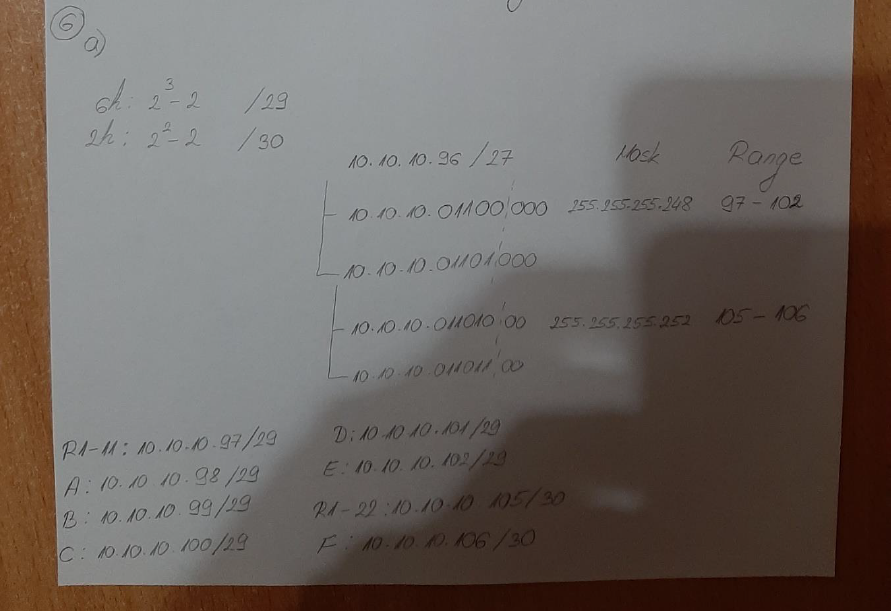 6
a)
6h: 2^3-2 /29
2h: 2^2-2 /30
10.10.10.96 /27 Mask Range
10.10.10.01100|000 255.255.255.248 97-102
10.10.10.01101|000
10.10.10.011010|00 255.255.255.252 105-106
10.10.10.011011|00
R1-11: 10.10.10.97/29 D: 10.10.10.101/29
A: 10.10.10.98/29 E: 10.10.10.102/29
B: 10.10.10.99/29 R1-22: 10.10.10.105/30
C: 10.10.10.100/29 F: 10.10.10.106/30